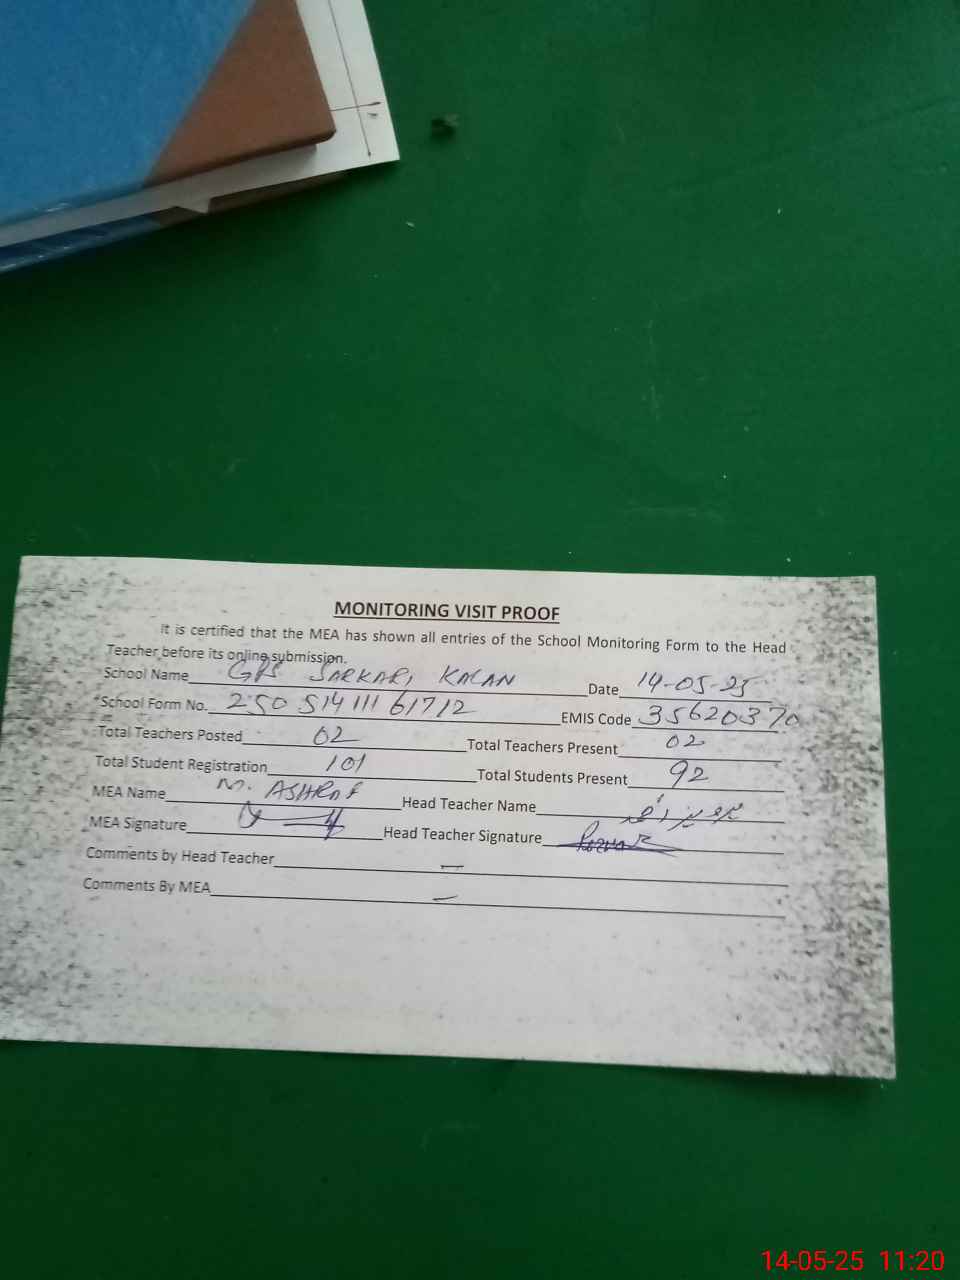 MONITORING VISIT PROOF
It is certified that the MEA has shown all entries of the School Monitoring Form to the Head
Teacher before its online submission.
School Name GPS SARKARI KALAN Date 14-05-25
School Form No. 250 514 111 61712 EMIS Code 35620370
Total Teachers Posted 02 Total Teachers Present 02
Total Student Registration 101 Total Students Present 92
MEA Name M. ASHRAF Head Teacher Name
MEA Signature Head Teacher Signature
Comments by Head Teacher —
Comments By MEA —
14-05-25 11:20